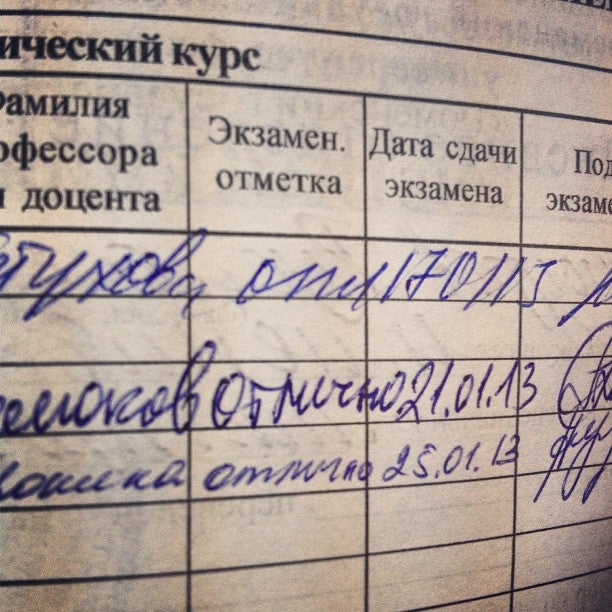 ический курс
Фамилия
офессора
и доцента
Экзамен.
отметка
Дата сдачи
экзамена
Под
экзаме
етухова отл 170113
отлично 21.01.13
отлично 25.01.13